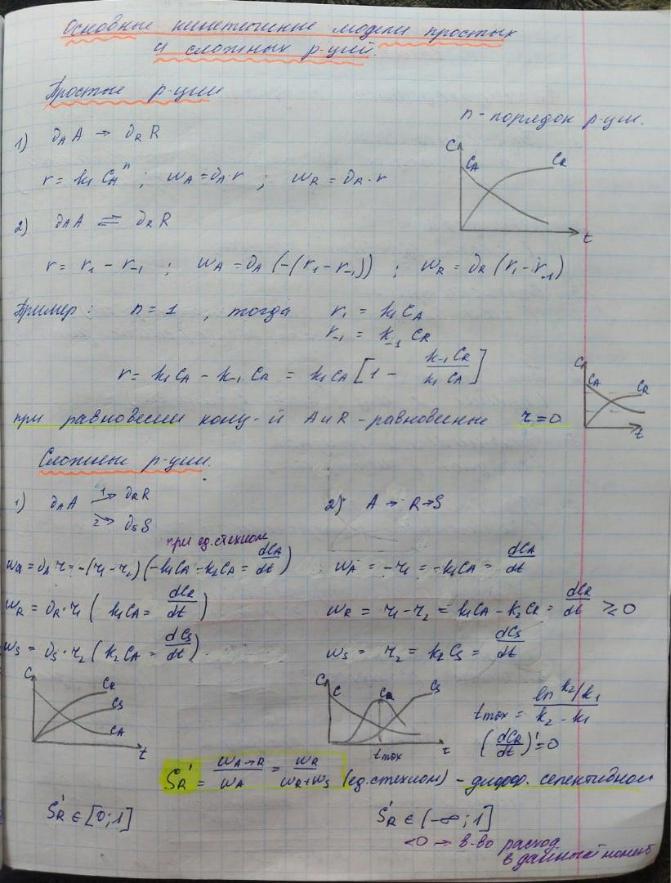 Основные кинетичные модели простых
и сложных р-ций.
Простые р-ции
n - порядок р-ции.
1) ∂A A → ∂R R
r = k1 CA^n ; wA = ∂A·r ; wR = ∂R·r
CA CR t
2) ∂A A ⇌ ∂R R
r = r1 - r-1 ; wA = ∂A (-(r1 - r-1)) ; wR = ∂R (r1 - r-1)
Пример: n = 1 , тогда r1 = k1 CA
r-1 = k-1 CR
r = k1 CA - k-1 CR = k1 CA [1 - k-1 CR / k1 CA]
C CA CR t
при равновесии конц-и A и R - равновесные r = 0
Сложные р-ции.
1) ∂A A 1→ ∂R R
2→ ∂S S
2) A → R → S
при ед. стехиом
wA = ∂A r = -(r1 - r2) (-k1 CA - k2 CA = dCA/dt)
wA = -r1 = -k1 CA = dCA/dt
wR = ∂R · r1 (k1 CA = dCR/dt)
wR = r1 - r2 = k1 CA - k2 CR = dCR/dt ≷ 0
wS = ∂S · r2 (k2 CA = dCS/dt).
wS = r2 = k2 CS = dCS/dt
C CR CS CA t
C C CR CS tmax t
tmax = ln k2/k1 / k2 - k1
(dCR/dt)' = 0
S'R = wA→R / wA = wR / wR + wS (ед. стехиом) - дифф. селективном
S'R ∈ [0; 1]
S'R ∈ (-∞; 1]
<0 → в-во расход
в данный момент